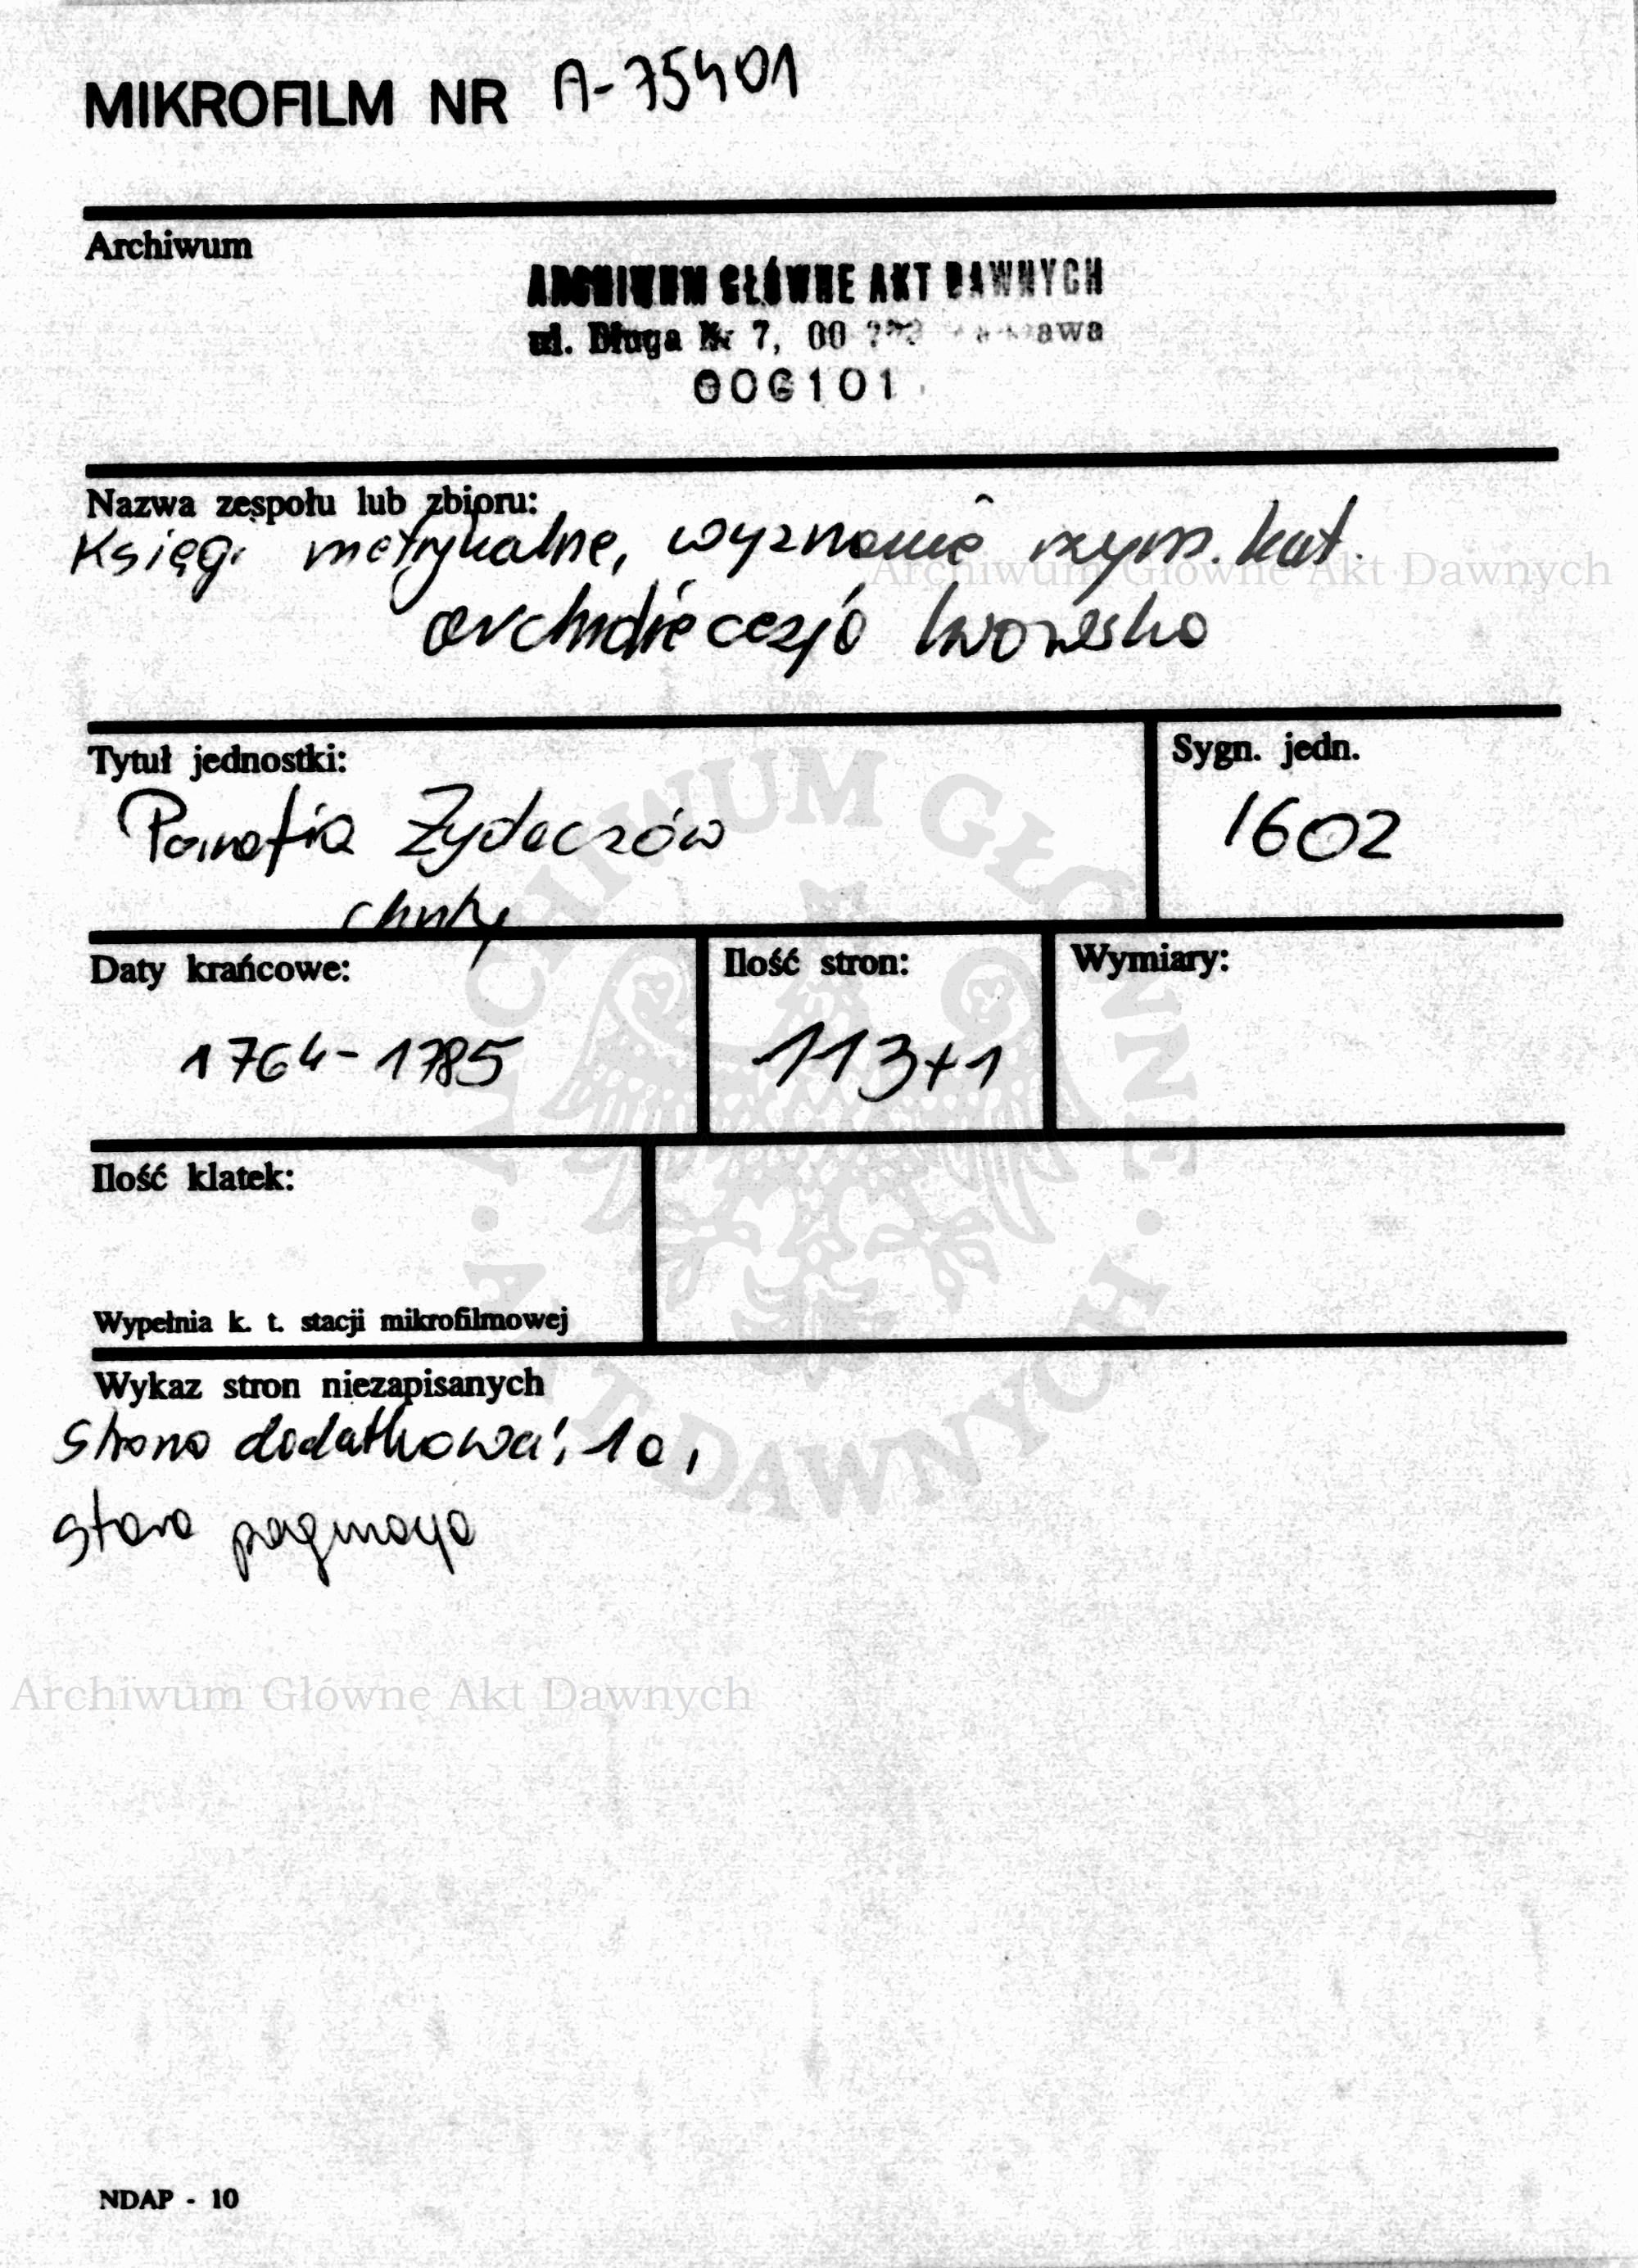 MIKROFILM NR A-75401
Archiwum
ARCHIWUM GŁÓWNE AKT DAWNYCH
ul. Długa Nr 7, 00
006101
Nazwa zespołu lub zbioru:
Księgi metrykalne, wyznanie rzym. kat.
Archiwum Główne Akt Dawnych
archidiecezja lwowska
Tytuł jednostki:
Sygn. jedn.
Parafia Żydaczów
1602
chrzty
Daty krańcowe:
Ilość stron:
Wymiary:
1764-1785
113+1
Ilość klatek:
Wypełnia k. t. stacji mikrofilmowej
ARCHIWUM GŁÓWNE AKT DAWNYCH
Wykaz stron niezapisanych
strona dodatkowa: 1a,
stara paginacja
Archiwum Główne Akt Dawnych
NDAP - 10